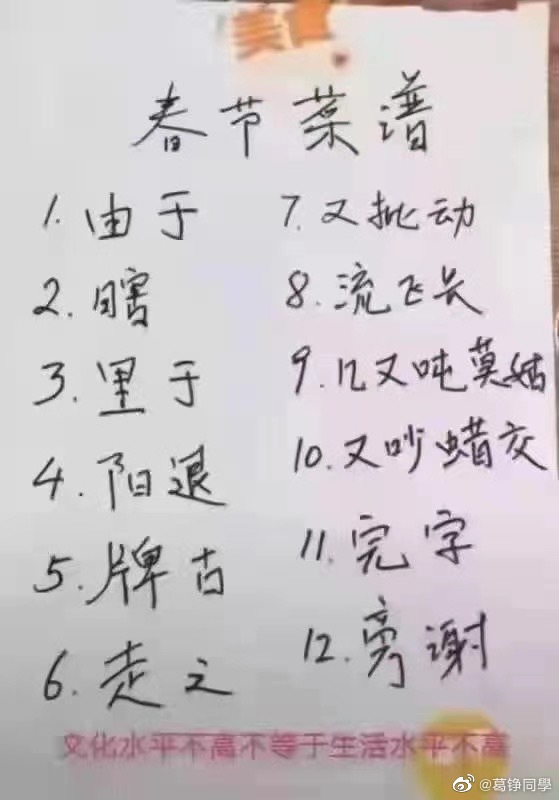 春节菜谱
1. 由于
2. 瞎
3. 里于
4. 阳退
5. 牌古
6. 走之
7. 又批动
8. 流飞长
9. 几又吨莫姑
10. 又吵蜡交
11. 完字
12. 旁谢
文化水平不高不等于生活水平不高
@葛铮同學